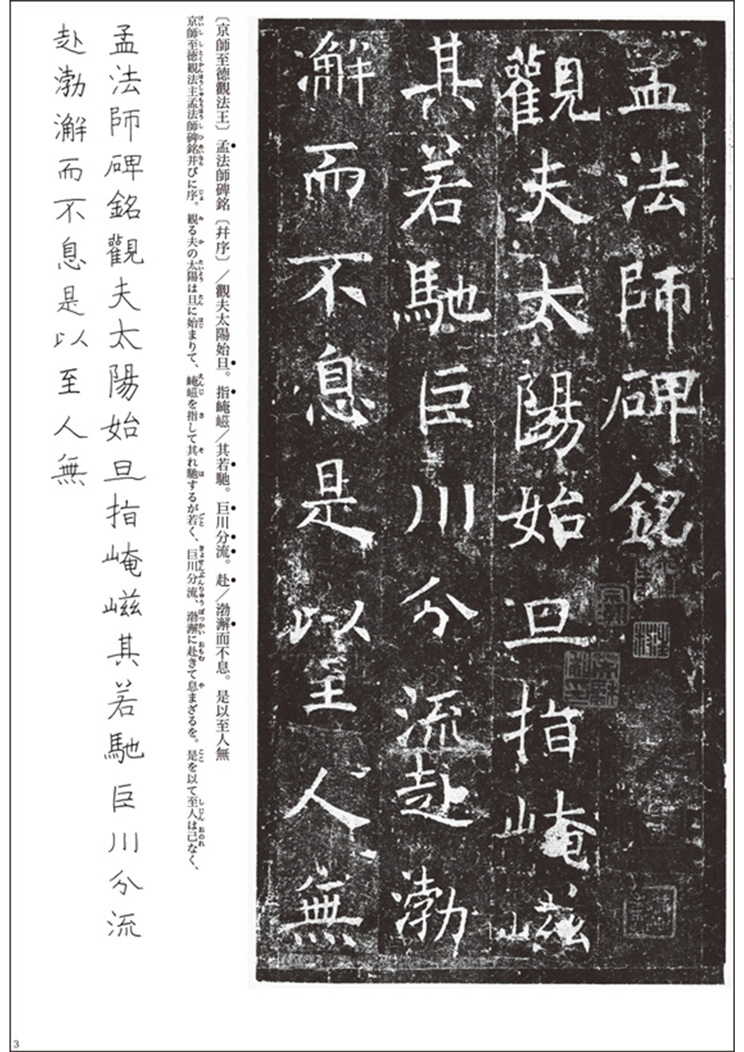 孟法師碑銘
觀夫太陽始旦指崦嵫
其若馳巨川分流赴渤
澥而不息是以至人無
〔京師至德觀法王〕孟法師碑銘〔幷序〕／觀夫太陽始旦。指崦嵫／其若馳。巨川分流。赴／渤澥而不息。是以至人無
京師至徳観法主孟法師碑銘并びに序。観る夫の太陽は旦に始まりて、崦嵫を指して其れ馳するが若く、巨川分流、渤澥に赴きて息まざるを。是を以て至人は己なく、
孟法師碑銘觀夫太陽始旦指崦嵫其若馳巨川分流
赴渤澥而不息是以至人無
3